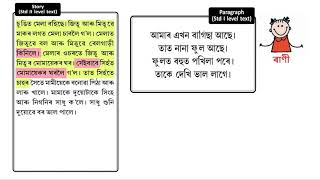 Story
(Std II level text)
চুবুৰীত মেলা বহিছে। জিতু আৰু মিতুৱে
মাকৰ লগত মেলা চাবলৈ গ'ল। মেলাত
জিতুৱে বল আৰু মিতুৱে বেলগাড়ী
কিনিলে। মেলাৰ ওচৰতে জিতু আৰু
মিতুৰ মোমায়েকৰ ঘৰ। সেইবাবে সিহঁত
মোমায়েকৰ ঘৰলৈ গ'ল। তাত সিহঁতে
চাহৰ সৈতে মামীয়েকে বনোৱা পিঠা আৰু
লাৰু খালে। মামাকে দুয়োটাকে সিংহ
আৰু নিগনিৰ সাধু ক'লে। সাধু শুনি
দুয়োৰে বৰ ভাল পালে।
Paragraph
(Std I level text)
আমাৰ এখন বাগিছা আছে।
তাত নানা ফুল আছে।
ফুলত বহুত পখিলা পৰে।
তাকে দেখি ভাল লাগে।
ৰাণী